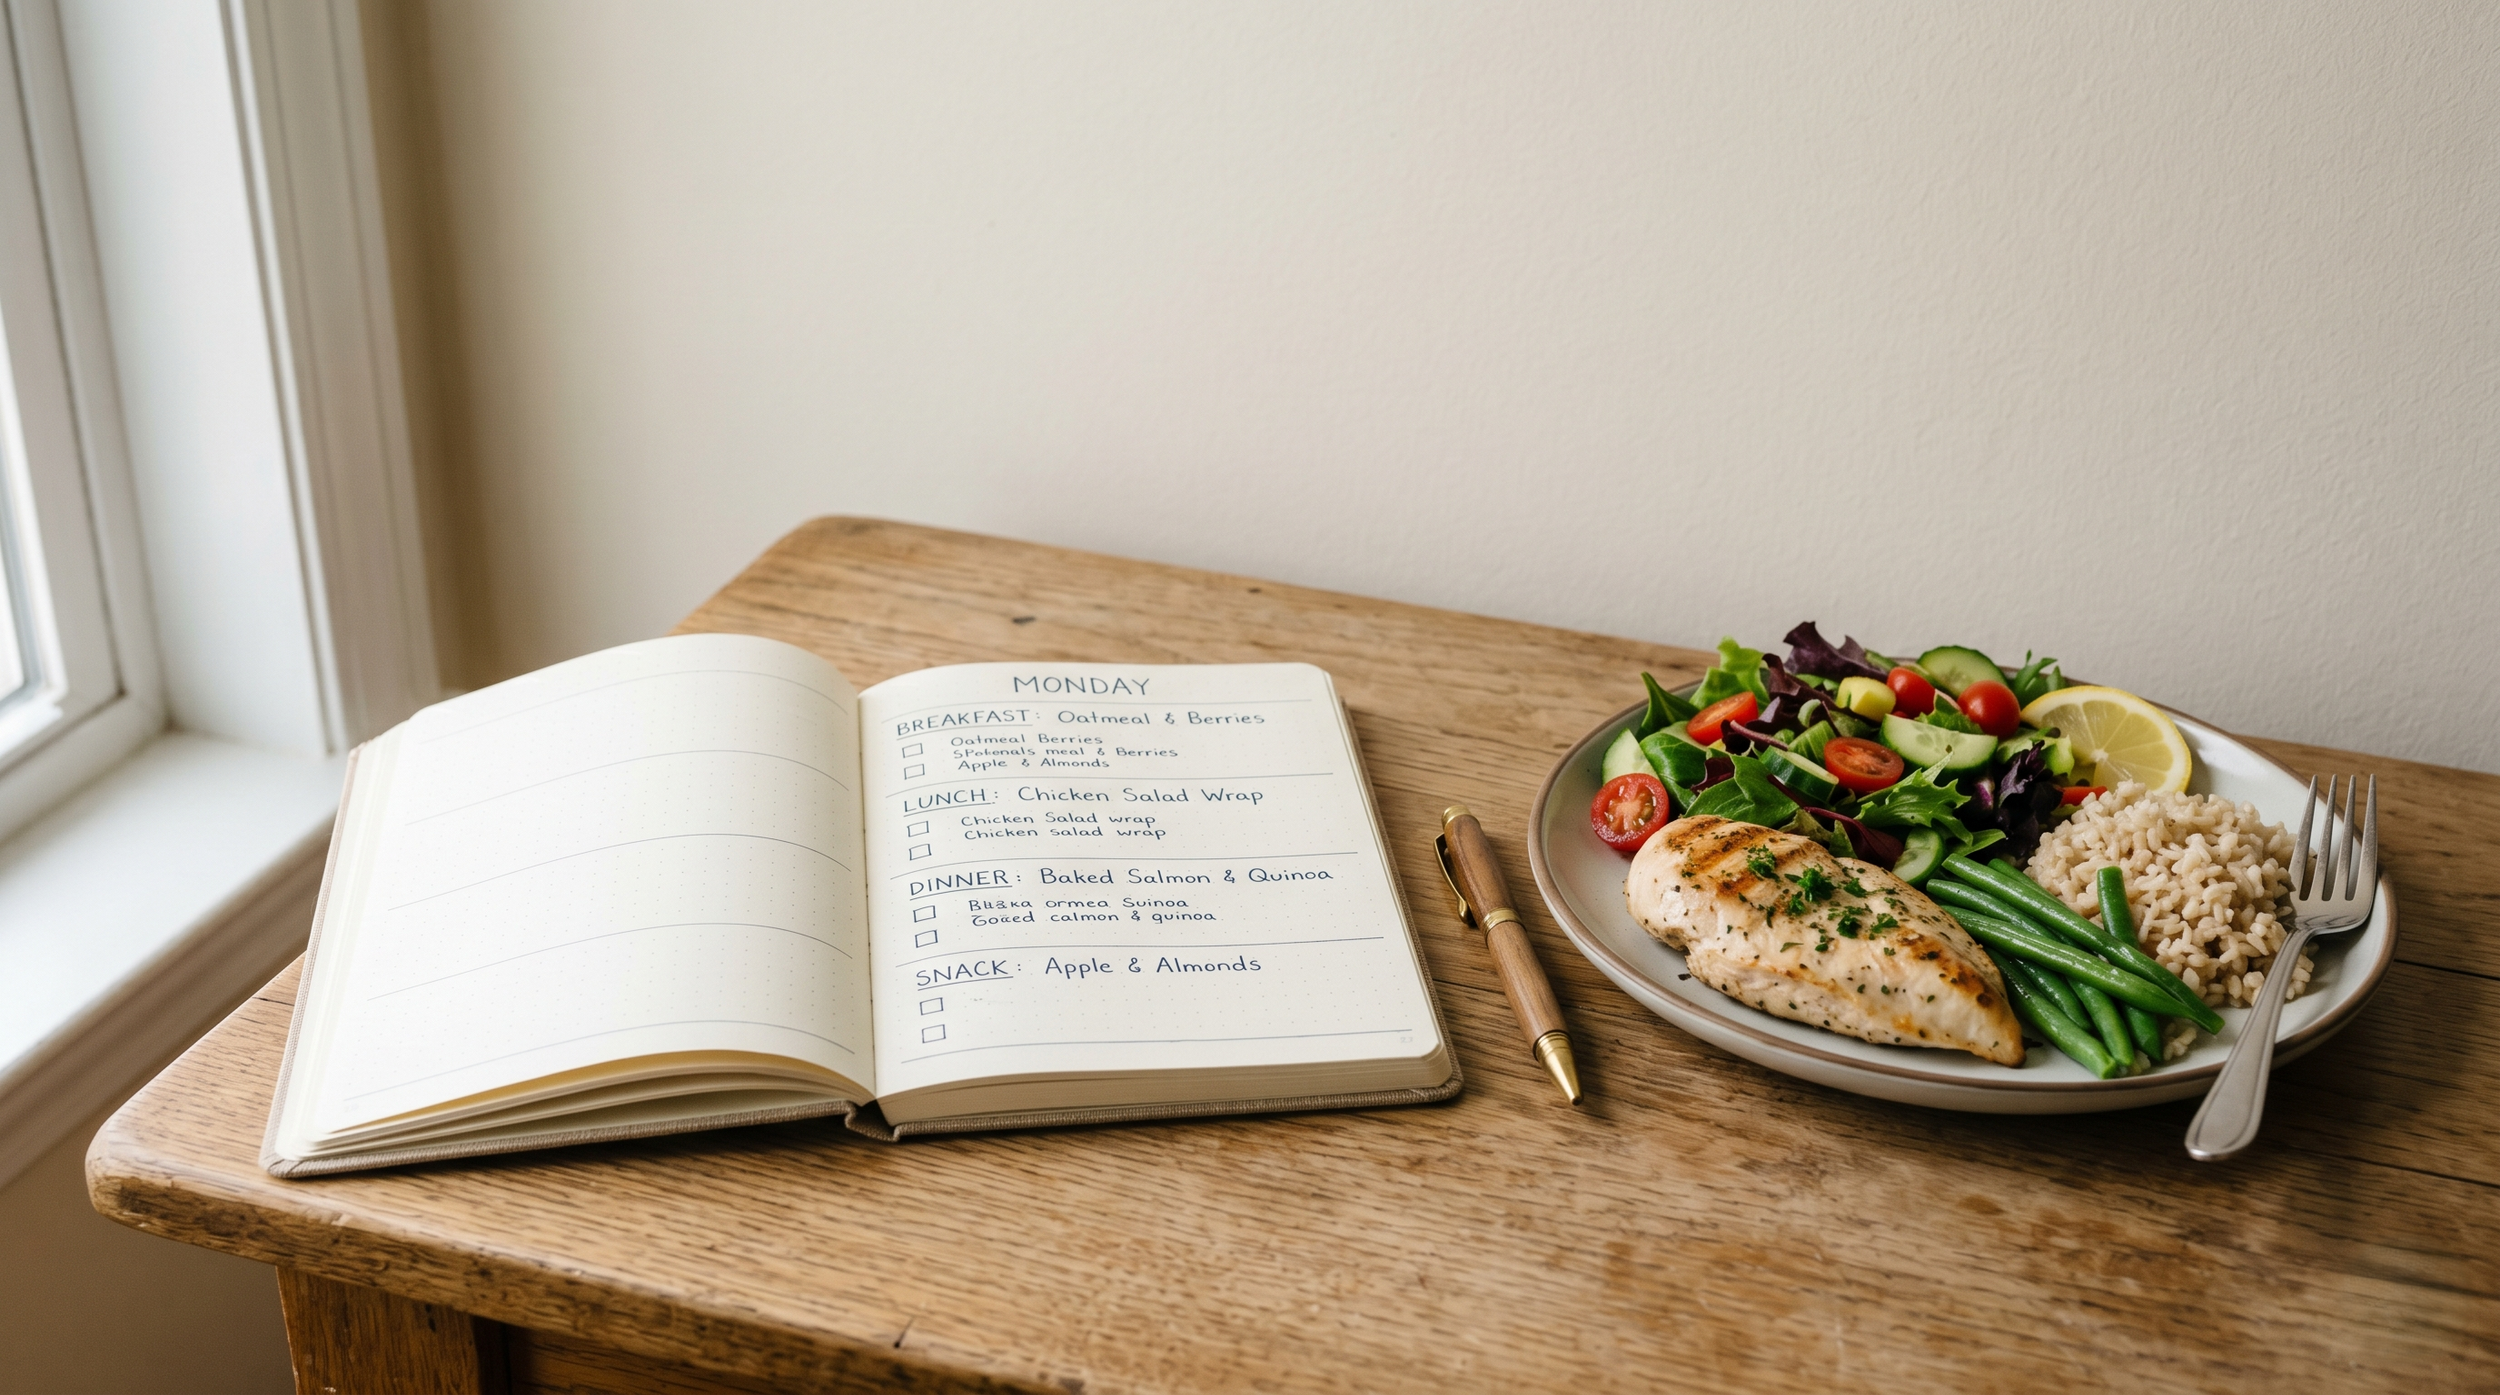 MONDAY
BREAKFAST: Oatmeal & Berries
Oatmeal Berries
meal & Berries
Apple & Almonds
LUNCH: Chicken Salad Wrap
Chicken Salad wrap
Chicken salad wrap
DINNER: Baked Salmon & Quinoa
ormea Suinoa
calmon & quinoa
SNACK: Apple & Almonds